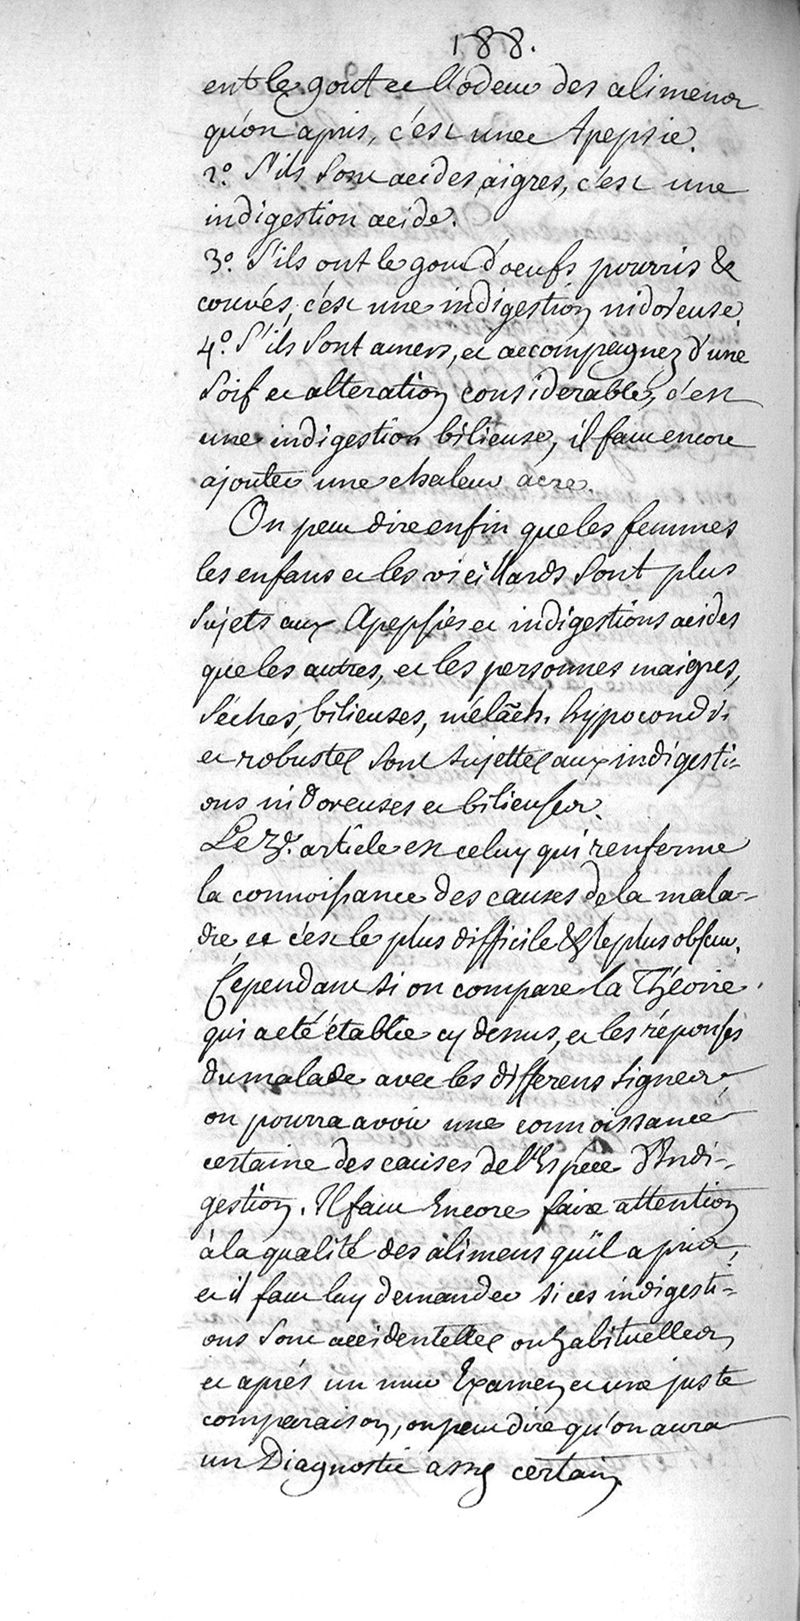 188.
ent le gout et l'odeur des alimens
qu'on a pris, c'est une Apepsie.
2º. S'ils sont acides, aigres, c'est une
indigestion acide.
3º. S'ils ont le gout d'oeufs pourris &
couvés, c'est une indigestion nidoreuse.
4º. S'ils sont amers, et accompagnez d'une
soif et alteration considerable, c'est
une indigestion bilieuse, il faut encore
ajouter une chaleur acre.
On peut dire enfin que les femmes
les enfans et les vieillards sont plus
sujets aux Apepsies et indigestions acides
que les autres, et les personnes maigres,
séches, bilieuses, mélāch. hypocondri
et robustes sont sujettes aux indigesti=
ons nidoreuses et bilieuses.
Le 3e. article est celuy qui renferme
la connoissance des causes de la mala=
die et c'est le plus difficile & le plus obscur.
Cependant si on compare la Théorie
qui a eté établie cy dessus, et les réponses
du malade avec les differens signes,
on pourra avoir une connoissance
certaine des causes de l'Espece d'Indi=
gestion. Il faut Encore faire attention
à la qualité des alimens qu'il a pris,
et il faut luy demander si ces indigesti=
ons sont accidentelles ou habituelles,
et aprés un mur Examen et une juste
comparaison, on peut dire qu'on aura
un Diagnostic assez certain.